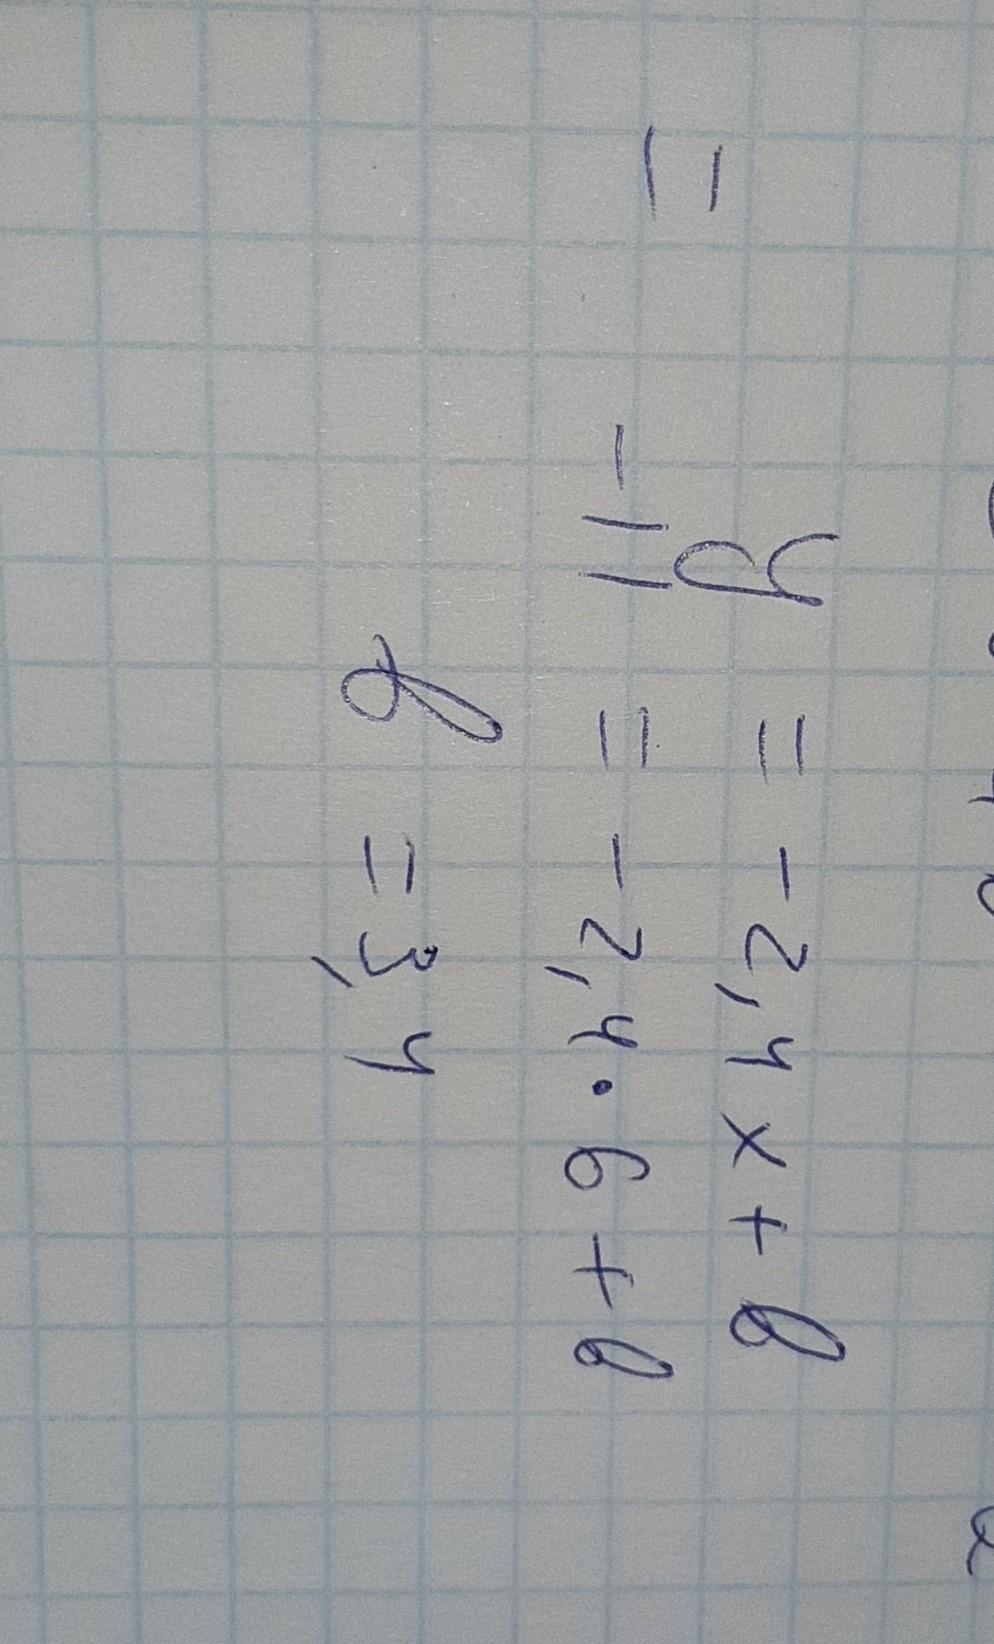 y = - 2,4x + b
=
- 11 = - 2,4 · 6 + b
b = 3,4